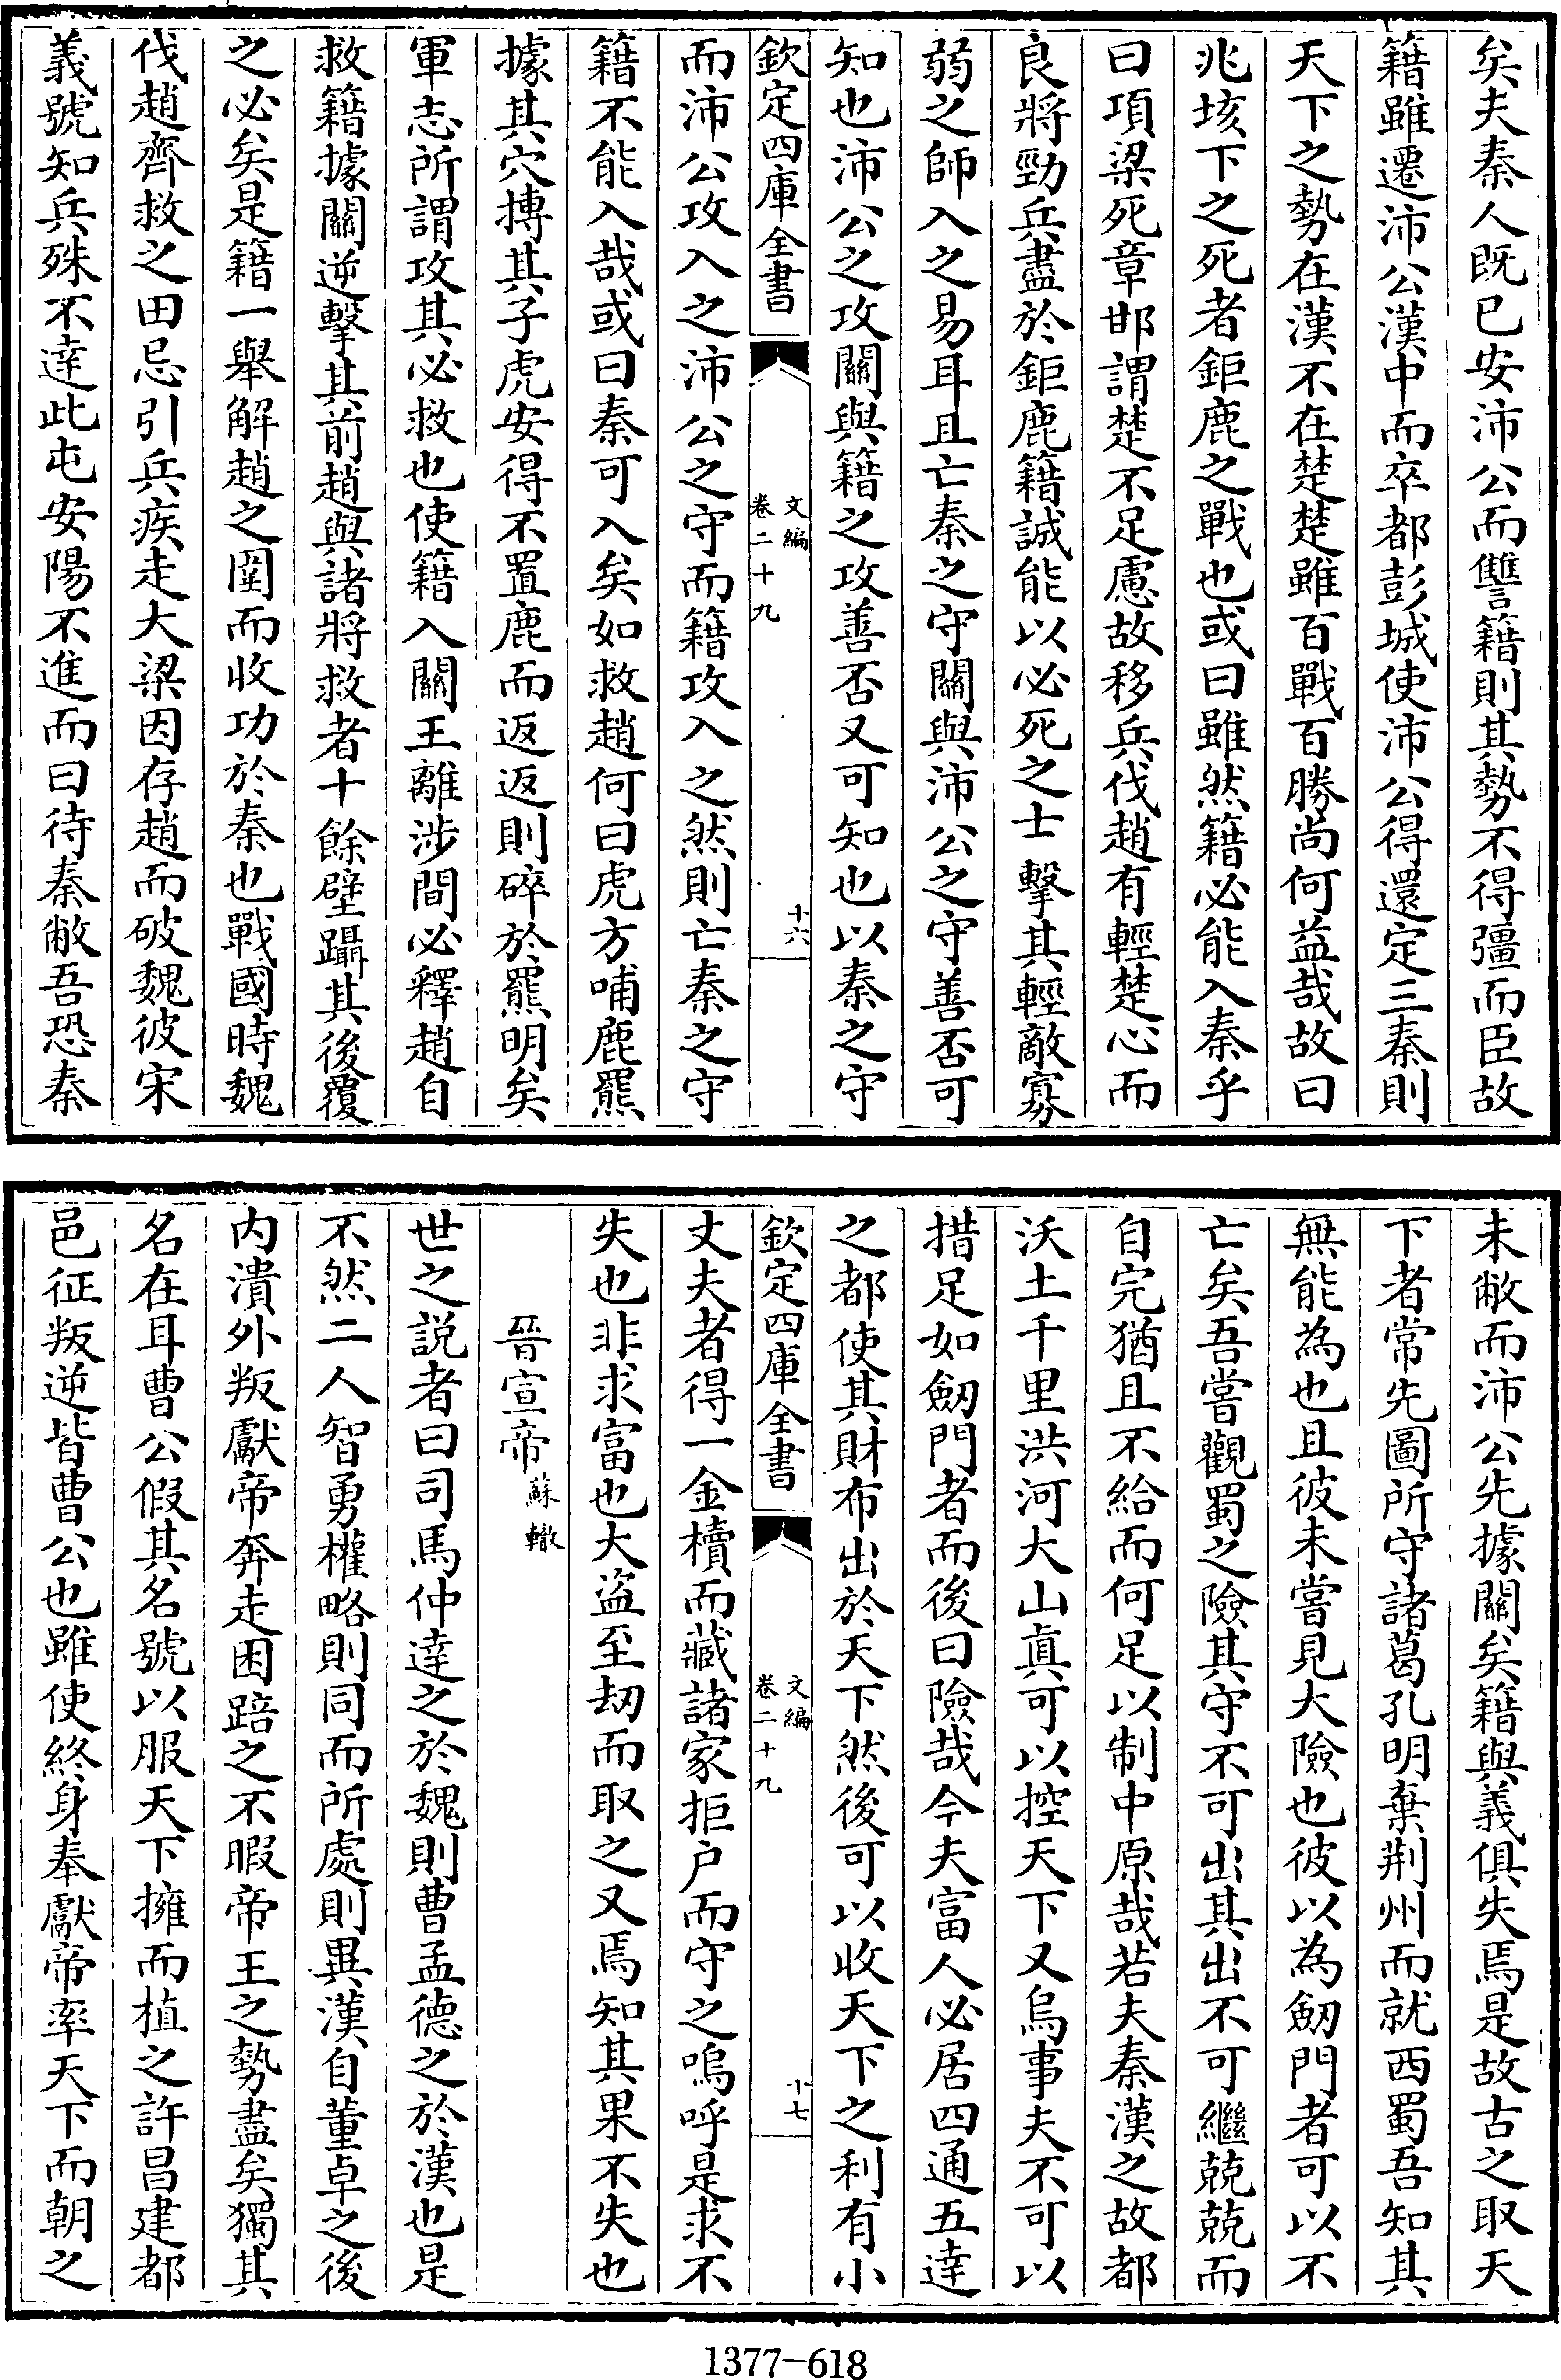 矣夫秦人既已安沛公而讐籍則其勢不得彊而臣故
籍雖遷沛公漢中而卒都彭城使沛公得還定三秦則
天下之勢在漢不在楚楚雖百戰百勝尚何益哉故曰
兆垓下之死者鉅鹿之戰也或曰雖然籍必能入秦乎
曰項梁死章邯謂楚不足慮故移兵伐趙有輕楚心而
良將勁兵盡於鉅鹿籍誠能以必死之士擊其輕敵寡
弱之師入之易耳且亡秦之守關與沛公之守善否可
知也沛公之攻關與籍之攻善否又可知也以秦之守
欽定四庫全書
文編
卷二十九
十六
而沛公攻入之沛公之守而籍攻入之然則亡秦之守
籍不能入哉或曰秦可入矣如救趙何曰虎方哺鹿羆
據其穴搏其子虎安得不置鹿而返返則碎於羆明矣
軍志所謂攻其必救也使籍入關王離涉間必釋趙自
救籍據關逆擊其前趙與諸將救者十餘壁躡其後覆
之必矣是籍一舉解趙之圍而收功於秦也戰國時魏
伐趙齊救之田忌引兵疾走大梁因存趙而破魏彼宋
義號知兵殊不達此屯安陽不進而曰待秦敝吾恐秦
未敝而沛公先據關矣籍與義俱失焉是故古之取天
下者常先圖所守諸葛孔明棄荆州而就西蜀吾知其
無能為也且彼未嘗見大險也彼以為劒門者可以不
亡矣吾嘗觀蜀之險其守不可出其出不可繼兢兢而
自完猶且不給而何足以制中原哉若夫秦漢之故都
沃土千里洪河大山真可以控天下又烏事夫不可以
措足如劒門者而後曰險哉今夫富人必居四通五達
之都使其財布出於天下然後可以收天下之利有小
欽定四庫全書
文編
卷二十九
十七
丈夫者得一金櫝而藏諸家拒户而守之嗚呼是求不
失也非求富也大盗至刼而取之又焉知其果不失也
晉宣帝蘇轍
世之説者曰司馬仲達之於魏則曹孟德之於漢也是
不然二人智勇權略則同而所處則異漢自董卓之後
内潰外叛獻帝奔走困踣之不暇帝王之勢盡矣獨其
名在耳曹公假其名號以服天下擁而植之許昌建都
邑征叛逆皆曹公也雖使終身奉獻帝率天下而朝之
1377-618